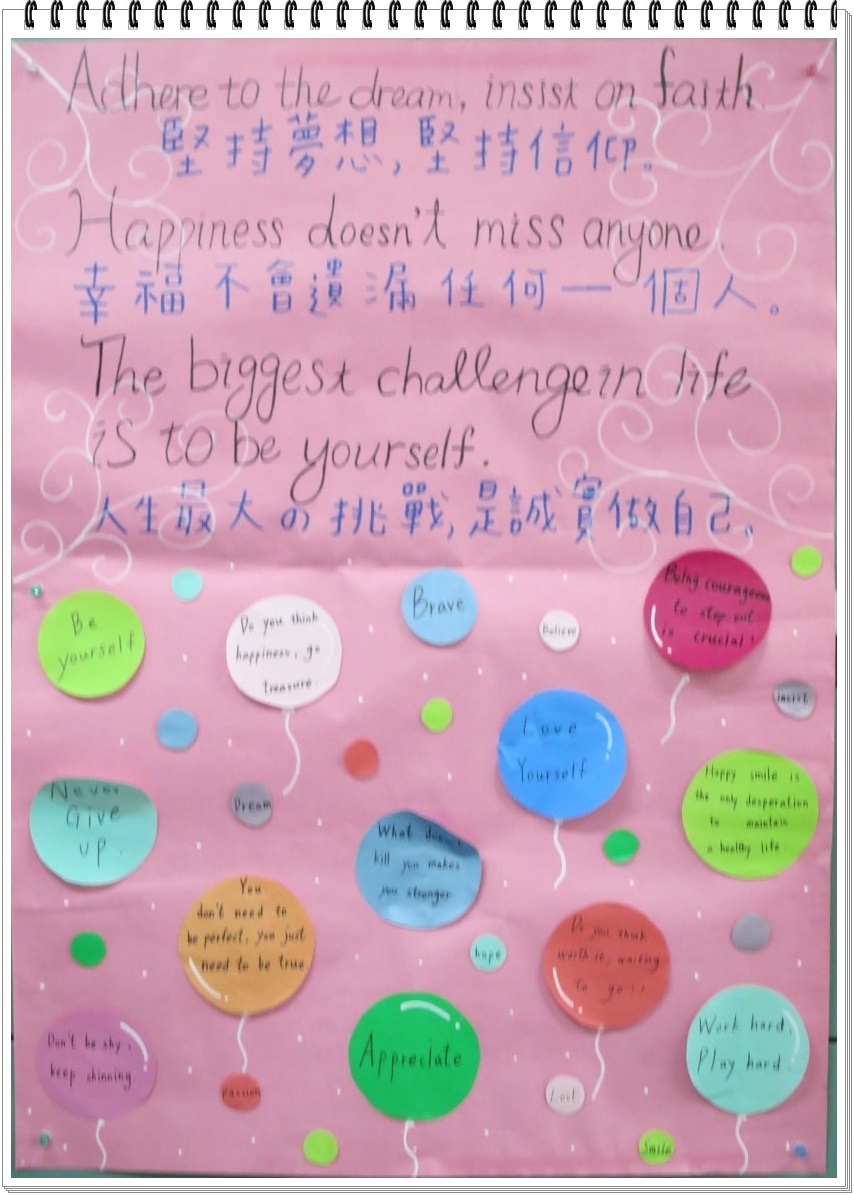 Adhere to the dream, insist on faith.
堅持夢想,堅持信仰。
Happiness doesn't miss anyone.
幸福不會遺漏任何一個人。
The biggest challenge in life
is to be yourself.
人生最大の挑戰,是誠實做自己。
Be
yourself
Do you think
happiness, go
treasure.
Brave
Believe
Being courageous
to step out
is crucial!
insist
Love
Yourself
Never
Give
up.
Dream
What doesn't
kill you makes
you stronger
Happy smile is
the only desperation
to maintain
a healthy life.
You
don't need to
be perfect, you just
need to be true
hope
Do you think
worth it, waiting
to go!!
Don't be shy,
keep shinning.
passion
Appreciate
Love
Work hard,
Play hard.
Smile